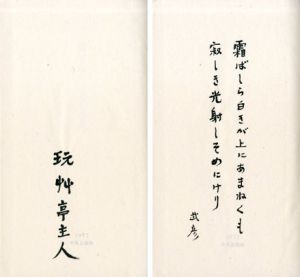 霜ばしら白きが上にあまねくも
寂しき光射しそめにけり
武彦
玩艸亭主人